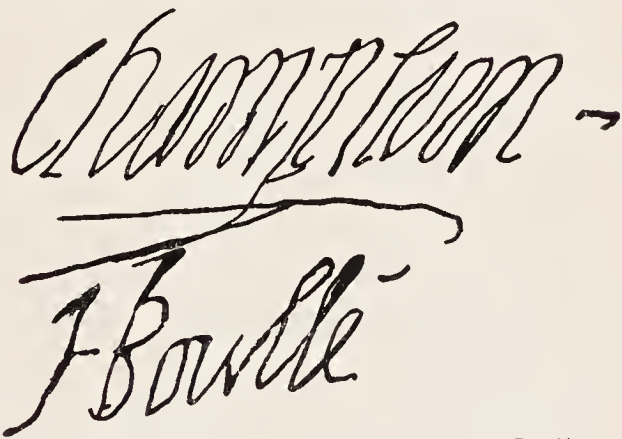 Champlain -
H Boullé